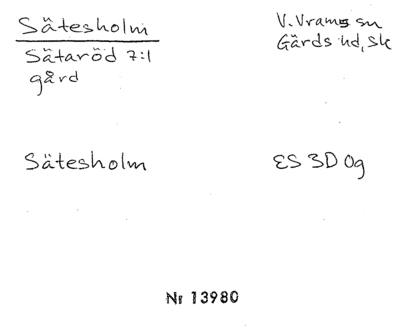 Sätesholm
V. Vrams sn
Sätaröd 7:1
Gärds hd, Sk
gård
Sätesholm
ES 3D 0g
Nr 13980